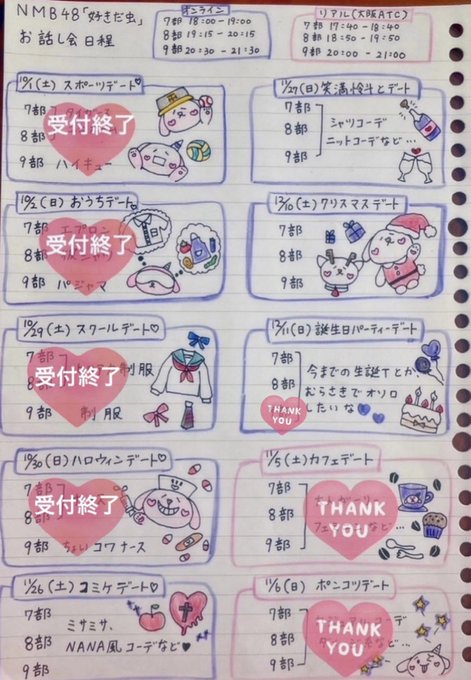 NMB48「好きだ虫」
お話し会日程
オンライン
7部 18:00-19:00
8部 19:15-20:15
9部 20:30-21:30
リアル(大阪ATC)
7部 17:40-18:40
8部 18:50-19:50
9部 20:00-21:00
10/1(土)スポーツデート♡
7部
受付終了
8部
9部 ハイキュー
10/2(日)おうちデート♡
7部 エプロン
受付終了
8部
9部 パジャマ
10/29(土)スクールデート♡
7部
受付終了
制服
8部
9部 制服
10/30(日)ハロウィンデート♡
7部
受付終了
8部
9部 ちょいコワナース
11/26(土)コミケデート♡
7部
8部
9部
ミサミサ、
NANA風コーデなど♥
11/27(日)笑満怜斗とデート
7部
8部
9部
シャツコーデ
ニットコーデなど…
12/10(土)クリスマスデート
7部
8部
9部
12/11(日)誕生日パーティーデート
7部
8部
9部
今までの生誕Tとか、
むらさきでオソロ
したいな
THANK YOU
11/5(土)カフェデート
7部
8部
9部
THANK
YOU
11/6(日)ポンコツデート
7部
8部
9部
THANK
YOU